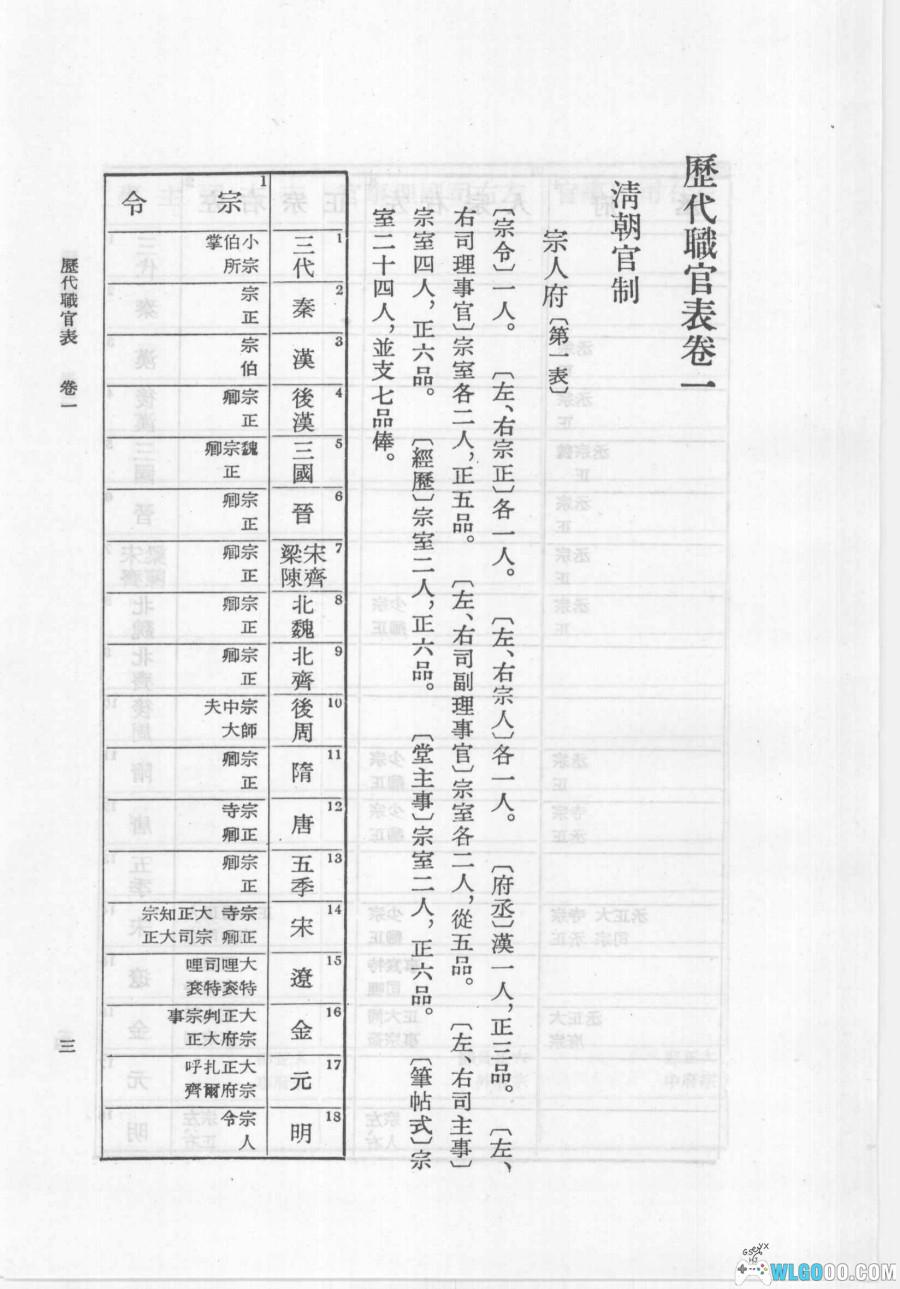 歷代職官表卷一
淸朝官制
宗人府〔第一表〕
〔宗令〕一人。　〔左、右宗正〕各一人。　〔左、右宗人〕各一人。　〔府丞〕漢一人，正三品。　〔左、
右司理事官〕宗室各二人，正五品。　〔左、右司副理事官〕宗室各二人，從五品。　〔左、右司主事〕
宗室四人，正六品。　〔經歷〕宗室二人，正六品。　〔堂主事〕宗室二人，正六品。　〔筆帖式〕宗
室二十四人，並支七品俸。
1 宗令
1 三代 小宗伯所掌
2 秦 宗正
3 漢 宗伯
4 後漢 宗正卿
5 三國 魏宗正卿
6 晉 宗正卿
7 宋齊梁陳 宗正卿
8 北魏 宗正卿
9 北齊 宗正卿
10 後周 宗師中大夫
11 隋 宗正卿
12 唐 宗正寺卿
13 五季 宗正卿
14 宋 宗正寺卿 大宗正司知大宗正
15 遼 大特哩袞司特哩袞
16 金 大宗正府判大宗正事
17 元 大宗正府扎爾呼齊
18 明 宗人令
歷代職官表　卷一
三
WLGOOO.COM